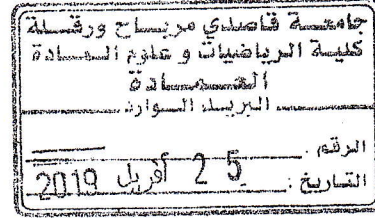 جامعة قاصدي مرباح ورقلة
كلية الرياضيات و علوم المادة
العمادة
البريد الوارد
الرقم :
التاريخ : 25 أفريل 2019